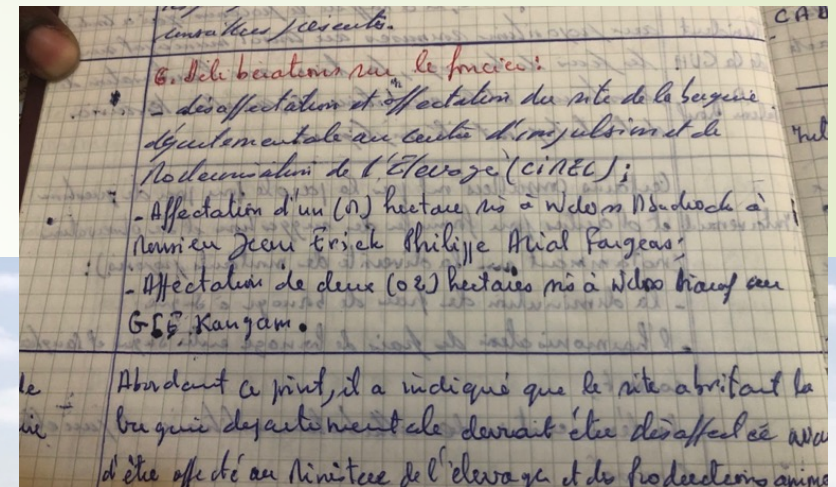 consultées / présentes.
CAD
6. Délibérations sur le foncier :
- désaffectation et affectation du site de la bergerie
départementale au centre d'impulsion et de
Modernisation de l'Élevage (CIMEL) ;
- Affectation d'un (01) hectare sis à à
Monsieur Jean Erick Philippe Arial Fargeas ;
- Affectation de deux (02) hectares sis à Ndoss au
GIE Kangam.
Abordant ce point, il a indiqué que le site abritant la
bergerie départementale devrait être désaffecté
d'être affecté au Ministère de l'élevage et des productions anim